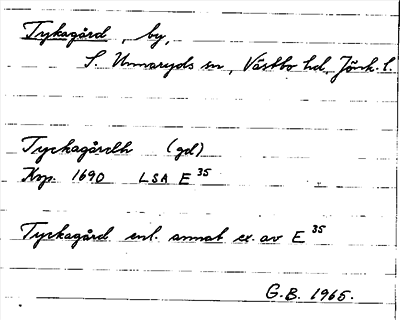 Tykagård, by,
S. Unnaryds sn, Västbo hd, Jönk. l.
Tyckagårdh (gd)
Kop. 1690 LSA E 35
Tyckagård enl. annat ex. av E 35
G.B. 1965.